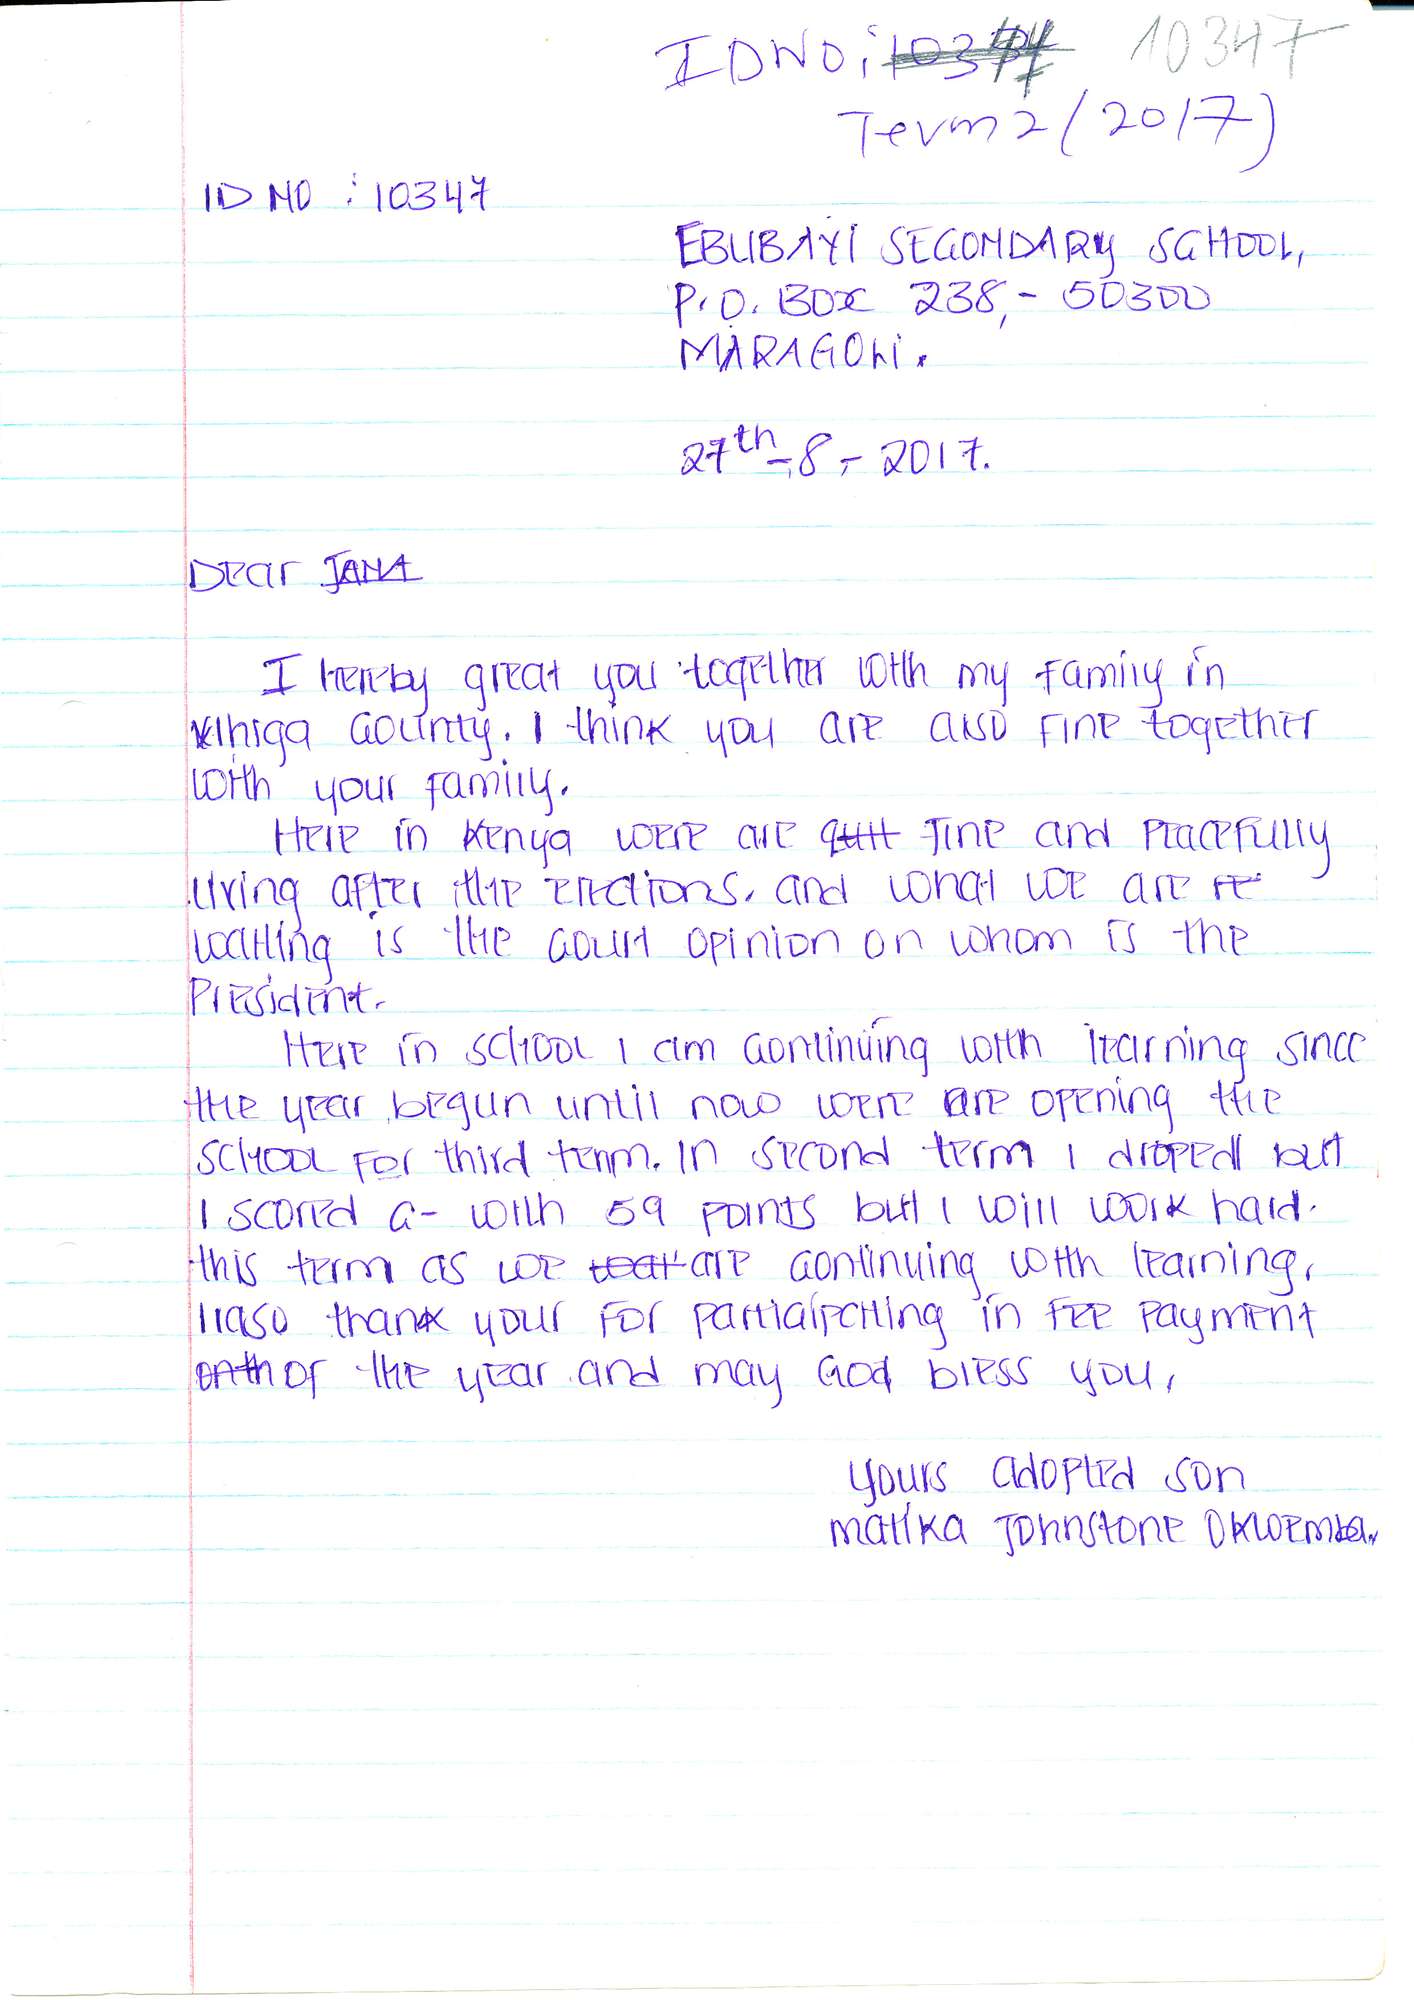 IDNO: 10347
Term 2 (2017)
ID NO : 10347
EBUBAYI SECONDARY SCHOOL,
P.O. BOX 238,- 50300
MARAGOLI.
27th-,8,- 2017.
Dear JANA
I hereby great you together with my family in
Vihiga County. I think you are also fine together
with your family.
Here in Kenya were are quit fine and peacefully
living after the elections. and what we are re
waiting is the court opinion on whom is the
President.
Here in school I am continuing with learning since
the year begun until now were are opening the
school for third term. In second term I droped but
I scored a C- with 59 points but I will work hard.
this term as we are continuing with learning,
I laso thank your for partiaipcting in fee payment
of the year and may God bless you,
yours adopted son
Matika Johnstone Okwemba.